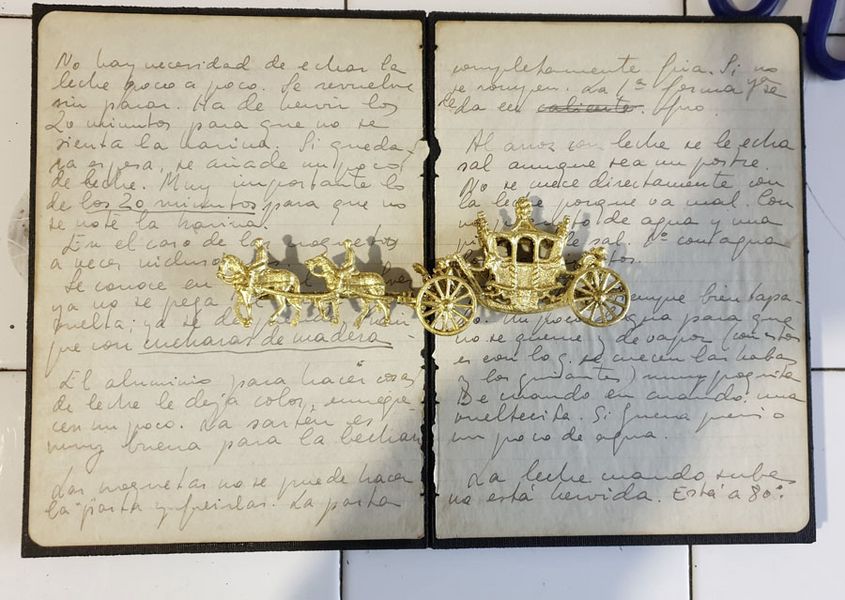 No hay necesidad de echar la
leche poco a poco. Se revuelve
sin parar. Ha de hervir los
20 minutos para que no se
sienta la harina. Si queda
espesa, se añade un poco
de leche. Muy importante lo
de los 20 minutos para que no
se note la harina.
En el caso de las
a veces incluso
Se conoce en
ya no se pega
vuelta; ya se
que con cucharas de madera
El aluminio para hacer cosas
de leche le deja color, ennegre-
cen un poco. La sartén es
muy buena para la becham
Las croquetas no se puede hacer
la pasta y freirlas. La pasta
completamente fria. Si no
se rompen. La 1ª forma se
le da en caliente. frio.
Al arroz con leche se le echa
sal aunque sea un postre.
No se cuece directamente con
la leche porque va mal. Con
de agua y una
de sal. con agua
siempre bien tapa-
o. Un poco agua para que
no se queme y de vapor (con estos
es con los q. se cuecen las habas
y los guisantes) muy poquita
De cuando en cuando una
vueltecita. Si fuera preciso
un poco de agua.
La leche cuando sube
no está hervida. Está a 80º.